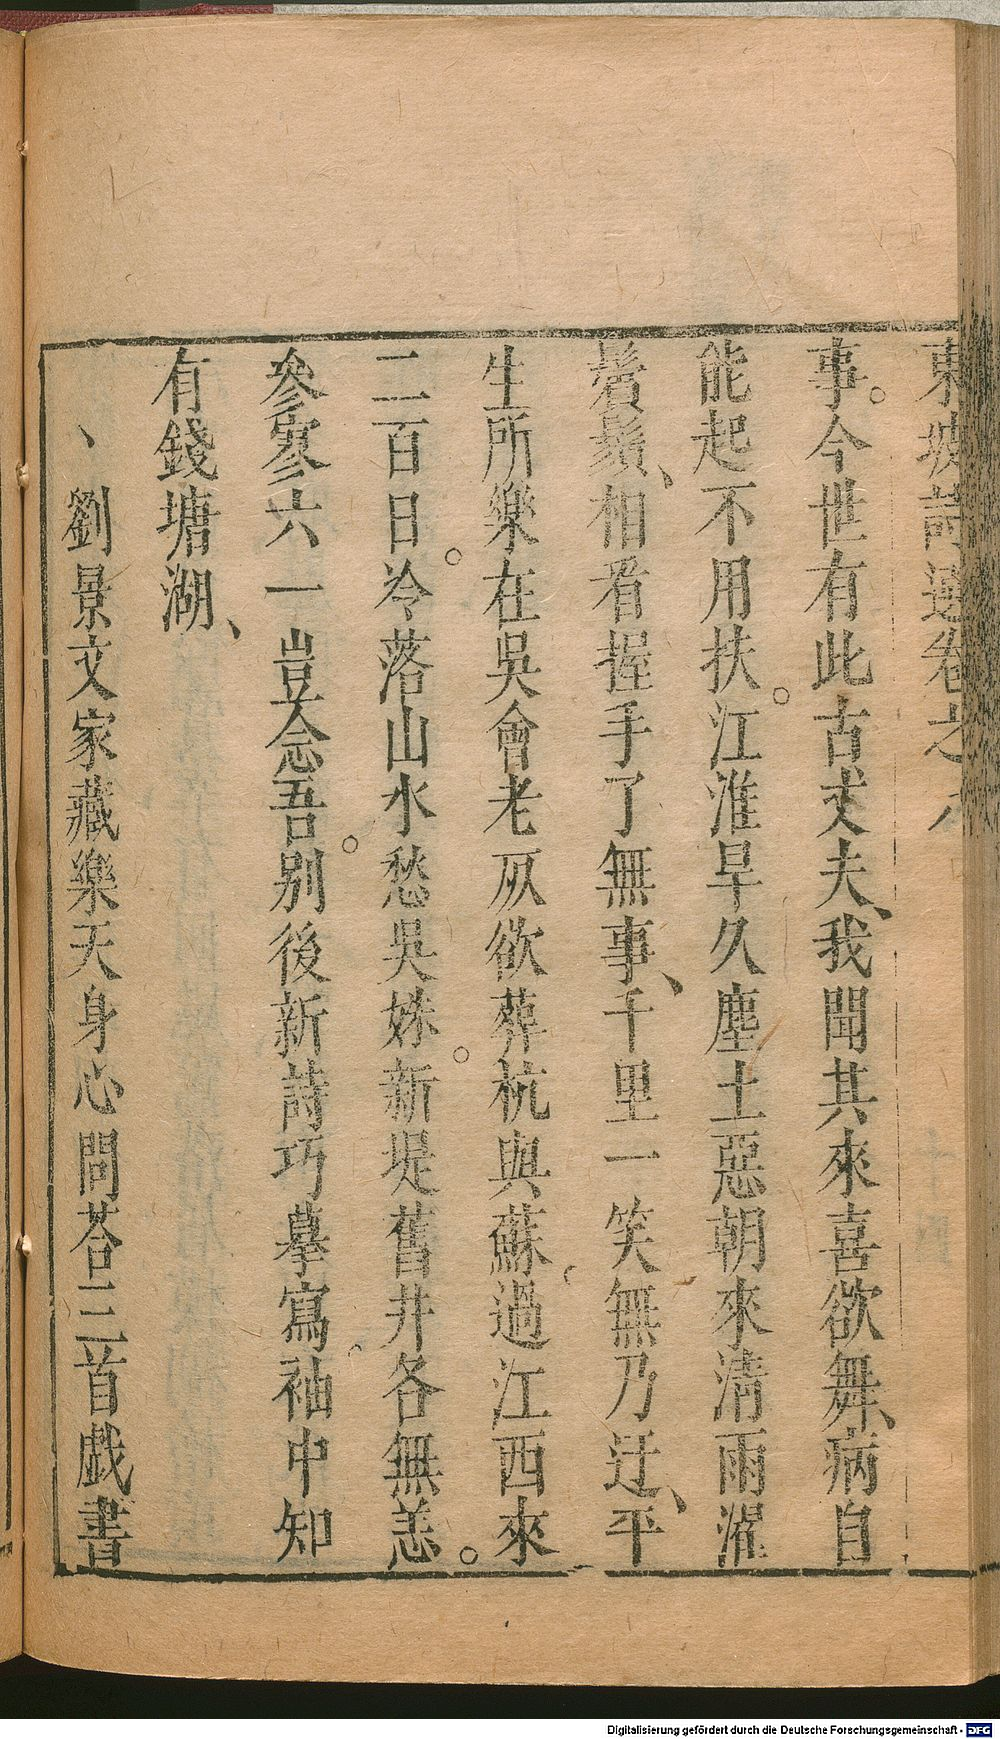 東坡詩選卷之
事。今世有此古丈夫、我聞其來喜欲舞、病自
能起不用扶。江淮旱久塵土惡朝來清雨濯
鬢鬚、相看握手了無事、千里一笑無乃迂、平
生所樂在吳會老死欲葬杭與蘇過江西來
二百日。冷落山水愁吳姝。新堤舊井各無恙。
參寥六一豈念吾。别後新詩巧摹寫袖中知
有錢塘湖、
、劉景文家藏樂天身心問荅三首戯書
Digitalisierung gefördert durch die Deutsche Forschungsgemeinschaft - DFG